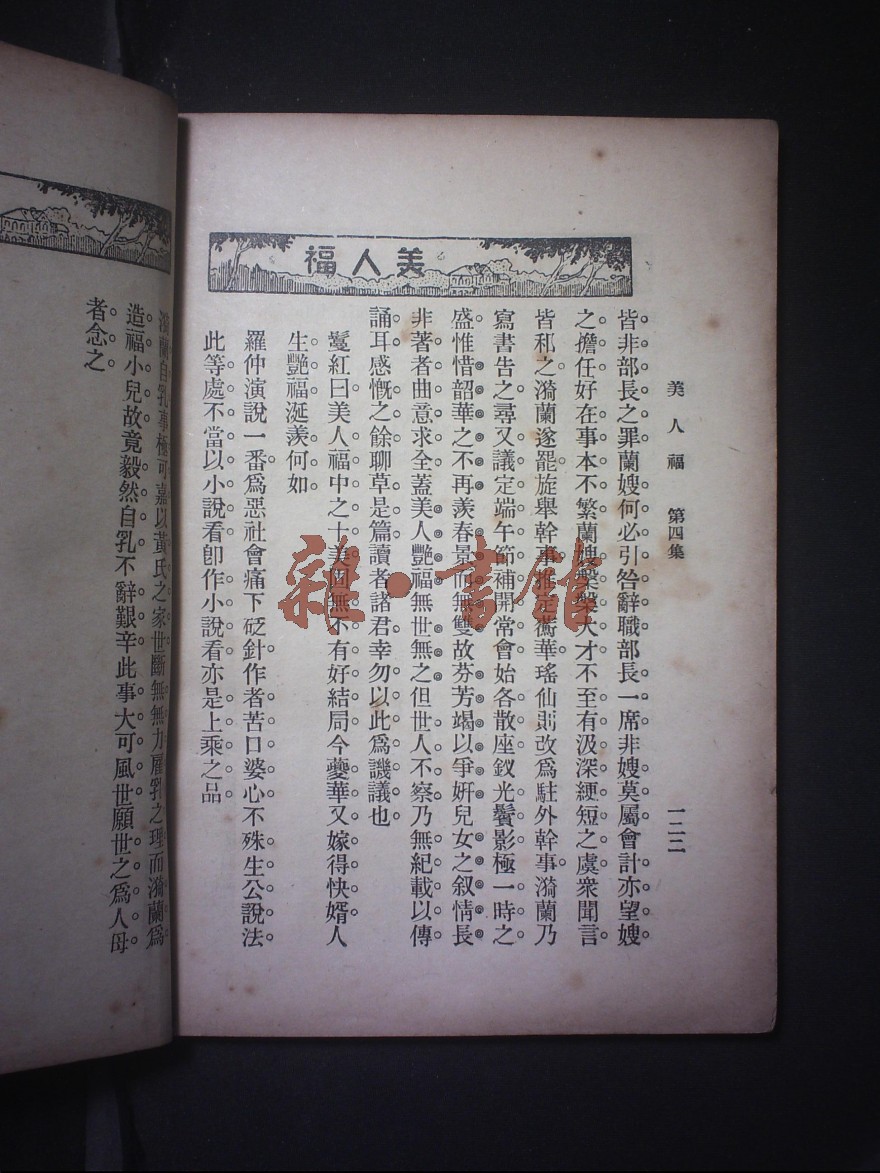 美人福 第四集 一二二
美人福
皆非部長之罪蘭嫂何必引咎辭職部長一席非嫂莫屬會計亦望嫂
之擔任好在事本不繁蘭嫂槃槃大才不至有汲深綆短之虞衆聞言
皆和之漪蘭遂罷旋舉幹事推定蘅華瑤仙則改爲駐外幹事漪蘭乃
寫書告之尋又議定端午節補開常會始各散座釵光鬢影極一時之
盛惟惜韶華之不再羨春景而無雙故芬芳竭以爭妍兒女之叙情長
非著者曲意求全蓋美人艷福無世無之但世人不察乃無紀載以傳
誦耳感慨之餘聊草是篇讀者諸君幸勿以此爲譏議也
鬘紅曰美人福中之十美固無不有好結局今夔華又嫁得快婿人
生艷福涎羨何如
羅仲演說一番爲惡社會痛下砭針作者苦口婆心不殊生公說法
此等處不當以小說看卽作小說看亦是上乘之品
漪蘭自乳事極可嘉以黃氏之家世斷無無力雇乳之理而漪蘭爲
造福小兒故竟毅然自乳不辭艱辛此事大可風世願世之爲人母
者念之
雜·書館